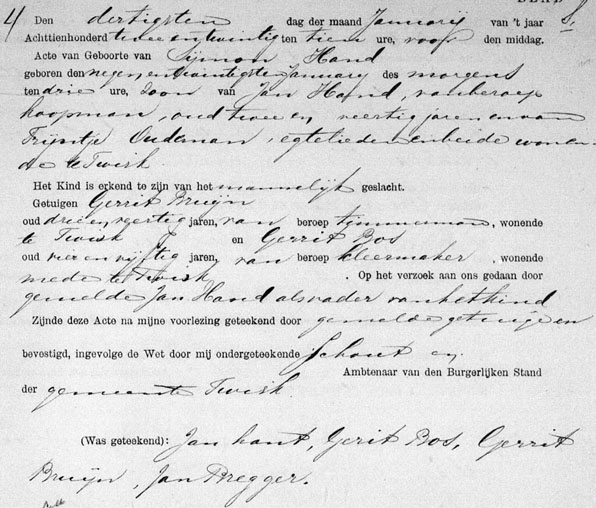 4 Den dertigsten dag der maand Januarij van 't jaar
Achttienhonderd twee en twintig ten tien ure, voor den middag.
Acte van Geboorte van Sijmon Hand
geboren den negen en twintigsten January des morgens
ten drie ure, Zoon van Jan Hand, van beroep
koopman, oud twee en veertig jaren en van
Trijntje Oudeman, egtelieden en beide wonen-
de te Twisk
Het Kind is erkend te zijn van het mannelijk geslacht.
Getuigen Gerrit Bruijn
oud drie en veertig jaren, van beroep timmerman, wonende
te Twisk en Gerrit Bos
oud vier en vijftig jaren, van beroep kleermaker, wonende
mede te Twisk. Op het verzoek aan ons gedaan door
gemelde Jan Hand als vader van het kind
Zijnde deze Acte na mijne voorlezing geteekend door gemelde getuigen
bevestigd, ingevolge de Wet door mij ondergeteekende Schout en
Ambtenaar van den Burgerlijken Stand
der gemeente Twisk.
(Was geteekend): Jan hant, Gerit Bos, Gerrit
Bruijn, Jan Bregger.